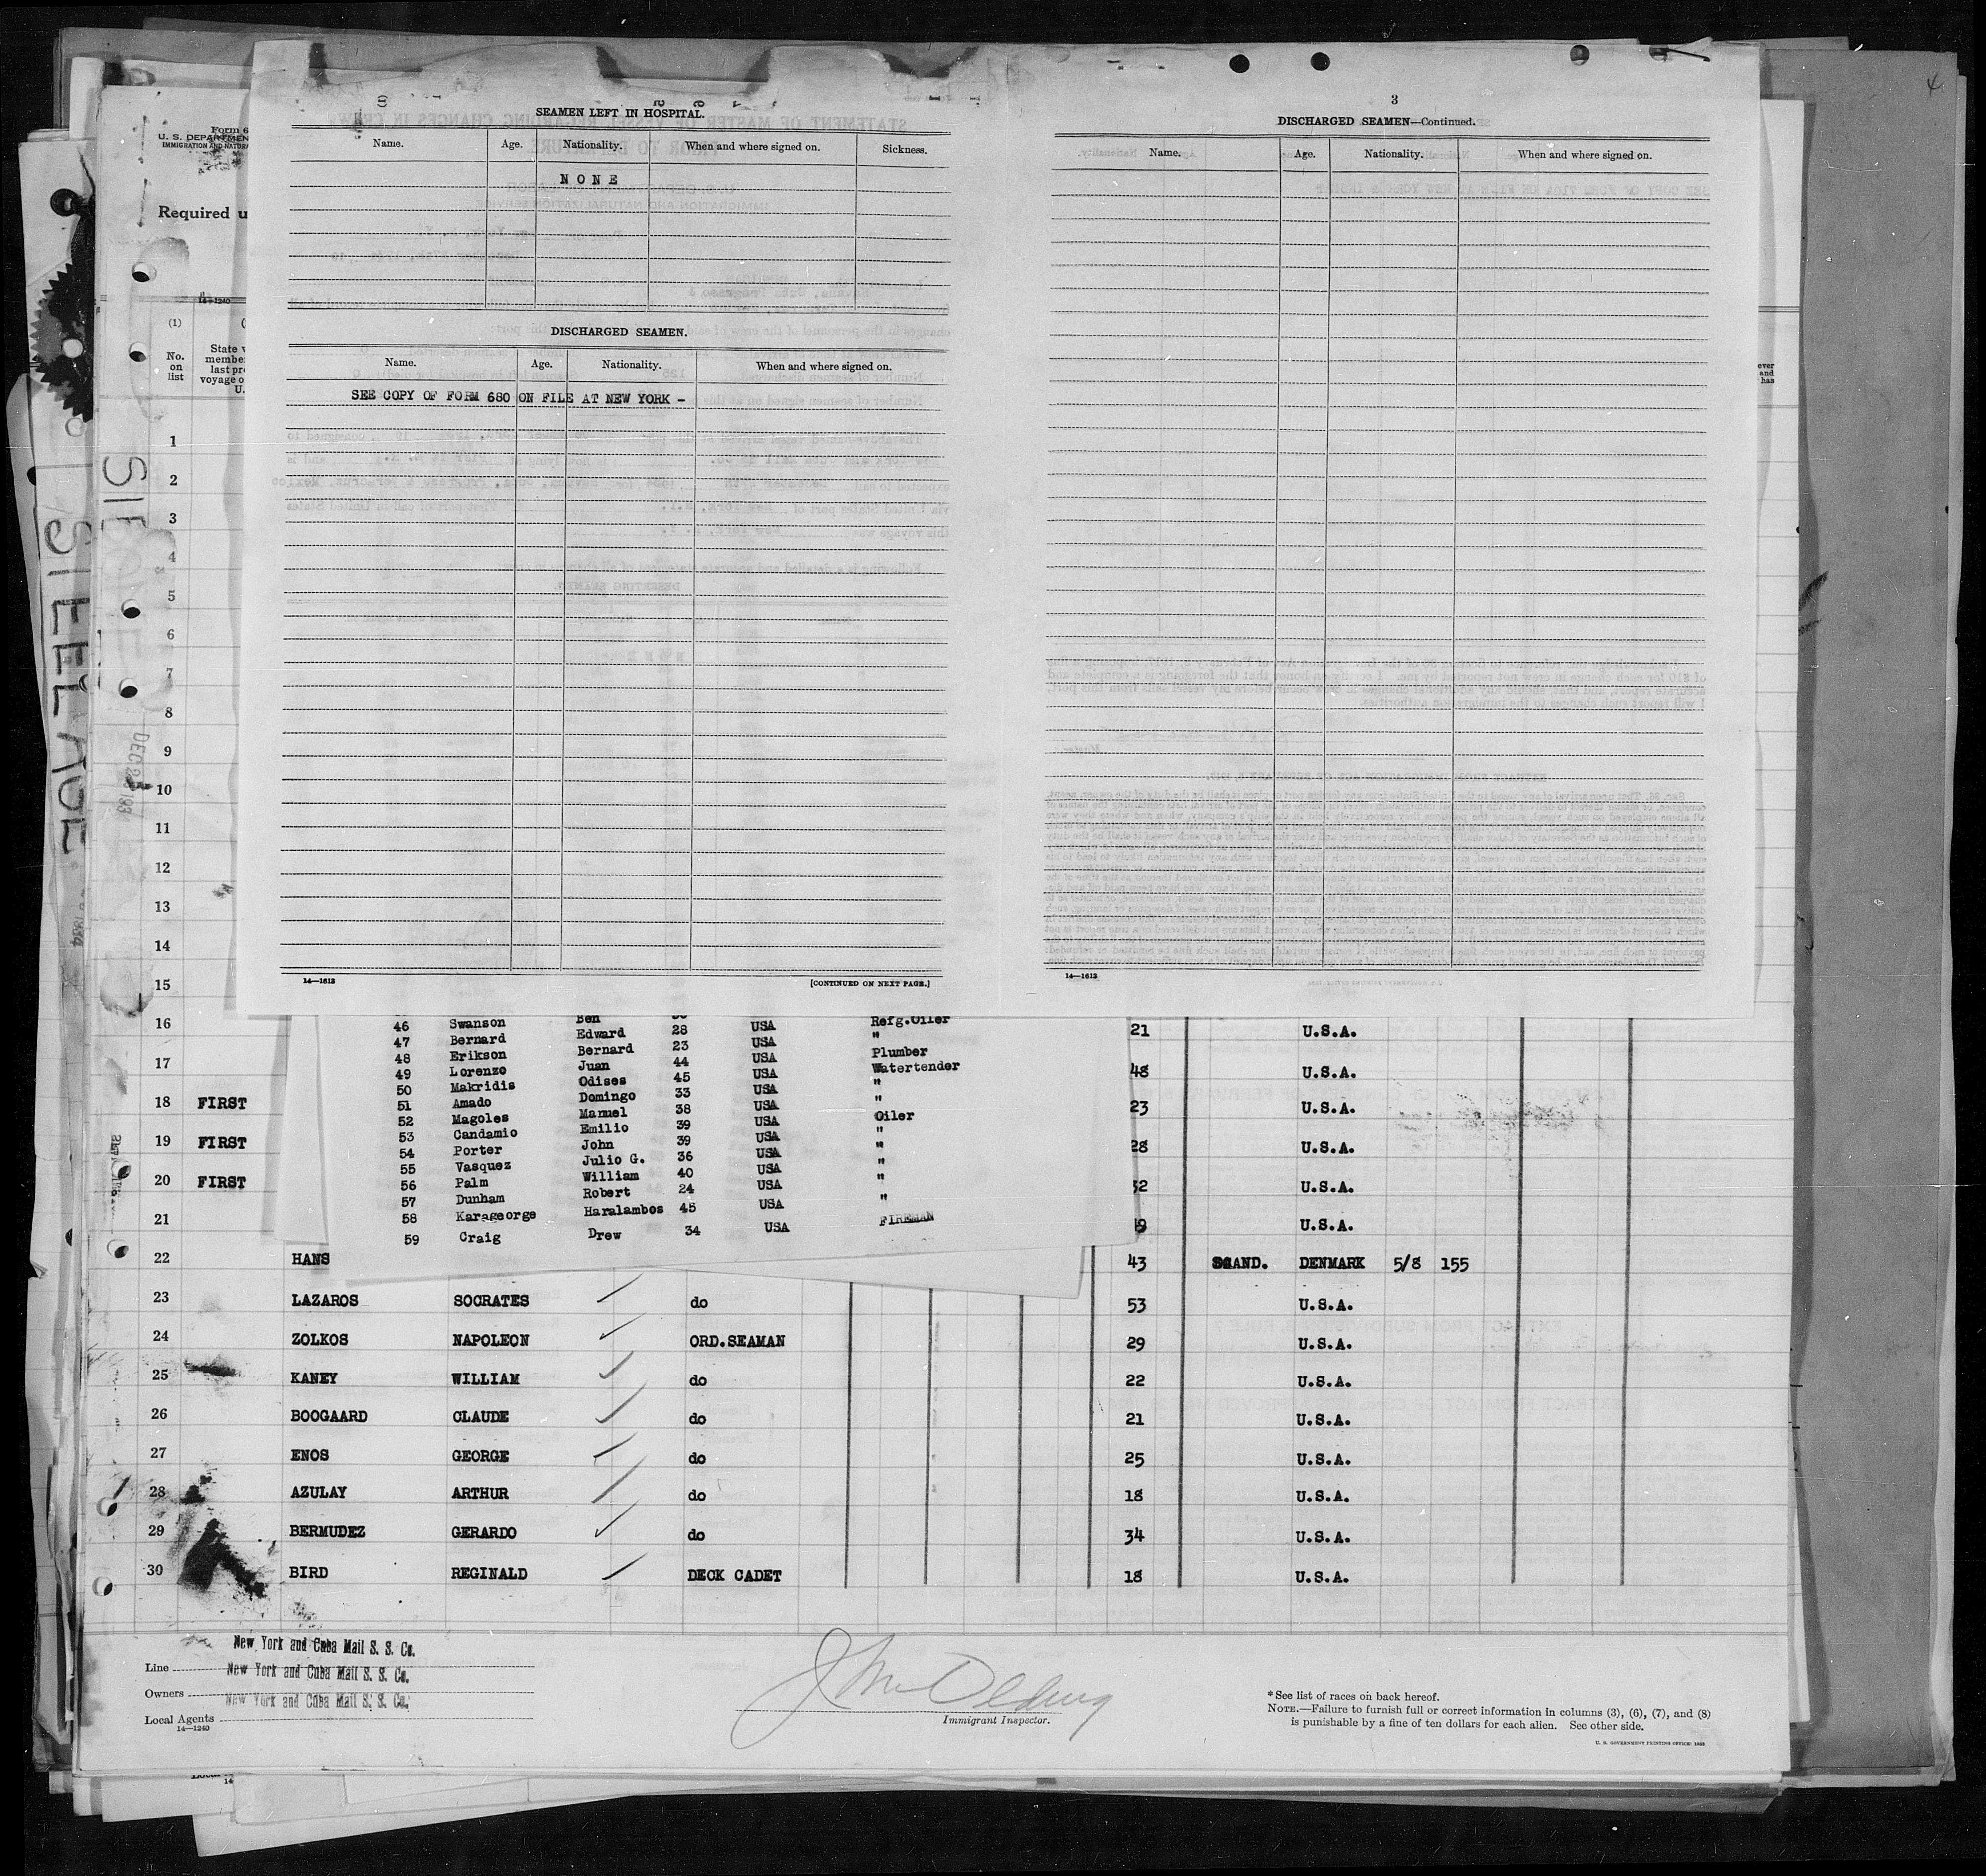 SEAMEN LEFT IN HOSPITAL.
Name. Age. Nationality. When and where signed on. Sickness.
NONE
DISCHARGED SEAMEN.
Name. Age. Nationality. When and where signed on.
SEE COPY OF FORM 680 ON FILE AT NEW YORK -
14—1613 [CONTINUED ON NEXT PAGE.]
3
DISCHARGED SEAMEN—Continued.
Name. Age. Nationality. When and where signed on.
14—1613
Form 6
U. S. DEPARTMEN
IMMIGRATION AND NATURA
Required u
14—1240
(1)
No. on list
State
membe
last pr
voyage o
U.
ever
and
has
DEC 2
1
2
3
4
5
6
7
8
9
10
11
12
13
14
15
16
17
18 FIRST
19 FIRST
20 FIRST
21
46 Swanson Ben USA Refg.Oiler
47 Bernard Edward 28 USA "
48 Erikson Bernard 23 USA Plumber
49 Lorenzo Juan 44 USA Watertender
50 Makridis Odises 45 USA "
51 Amado Domingo 33 USA "
52 Magoles Manuel 38 USA Oiler
53 Candamio Emilio 39 USA "
54 Porter John 39 USA "
55 Vasquez Julio G. 36 USA "
56 Palm William 40 USA "
57 Dunham Robert 24 USA "
58 Karageorge Haralambos 45 USA
59 Craig Drew 34 USA FIREMAN
21 U.S.A.
48 U.S.A.
23 U.S.A.
28 U.S.A.
32 U.S.A.
U.S.A.
22 HANS 43 SCAND. DENMARK 5/8 155
23 LAZAROS SOCRATES do 53 U.S.A.
24 ZOLKOS NAPOLEON ORD.SEAMAN 29 U.S.A.
25 KANEY WILLIAM do 22 U.S.A.
26 BOOGAARD CLAUDE do 21 U.S.A.
27 ENOS GEORGE do 25 U.S.A.
28 AZULAY ARTHUR do 18 U.S.A.
29 BERMUDEZ GERARDO do 34 U.S.A.
30 BIRD REGINALD DECK CADET 18 U.S.A.
New York and Cuba Mail S. S. Co.
Line New York and Cuba Mail S. S. Co.
Owners New York and Cuba Mail S. S. Co.
Local Agents
14—1240
Immigrant Inspector.
*See list of races on back hereof.
NOTE.—Failure to furnish full or correct information in columns (3), (6), (7), and (8)
is punishable by a fine of ten dollars for each alien. See other side.
U. S. GOVERNMENT PRINTING OFFICE: 1933